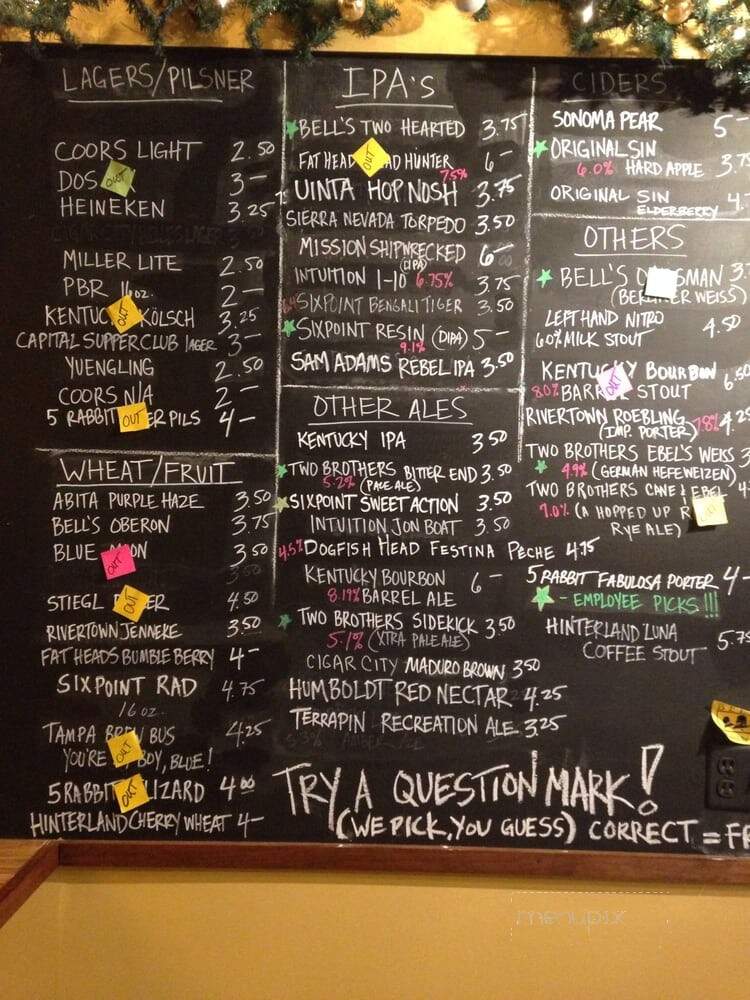 LAGERS/PILSNER
COORS LIGHT 2.50
DOS OUT 3-
HEINEKEN 3.25
MILLER LITE 2.50
PBR 16 oz. 2-
KENTUC OUT KÖLSCH 3.25
CAPITAL SUPPER CLUB LAGER 3-
YUENGLING 2.50
COORS N/A 2-
5 RABBIT OUT ER PILS 4-
WHEAT/FRUIT
ABITA PURPLE HAZE 3.50
BELL'S OBERON 3.75
BLUE OUT ON 3.50
STIEGL OUT ER 4.50
RIVERTOWN JENNEKE 3.50
FAT HEADS BUMBLE BERRY 4-
SIXPOINT RAD 4.75
16 oz.
TAMPA BREW BUS 4.25
YOU'RE OUT BOY, BLUE!
5 RABBIT OUT LIZARD 4.00
HINTERLAND CHERRY WHEAT 4-
IPA'S
BELL'S TWO HEARTED 3.75
FAT HEAD OUT AD HUNTER 6-
7.5%
UINTA HOP NOSH 3.75
SIERRA NEVADA TORPEDO 3.50
MISSION SHIPWRECKED 6-
(DIPA)
INTUITION I-10 6.75% 3.75
SIXPOINT BENGALI TIGER 3.50
SIXPOINT RESIN (DIPA) 5-
9.1%
SAM ADAMS REBEL IPA 3.50
OTHER ALES
KENTUCKY IPA 3.50
TWO BROTHERS BITTER END 3.50
5.2% (PALE ALE)
SIXPOINT SWEET ACTION 3.50
INTUITION JON BOAT 3.50
4.5% DOGFISH HEAD FESTINA PECHE 4.75
KENTUCKY BOURBON 6-
8.19% BARREL ALE
TWO BROTHERS SIDEKICK 3.50
5.1% (XTRA PALE ALE)
CIGAR CITY MADURO BROWN 3.50
HUMBOLDT RED NECTAR 4.25
TERRAPIN RECREATION ALE 3.25
CIDERS
SONOMA PEAR 5-
ORIGINAL SIN
6.0% HARD APPLE 3.7
ORIGINAL SIN 4.
ELDERBERRY
OTHERS
BELL'S O SMAN 3.
(BERLINER WEISS)
LEFT HAND NITRO 4.50
6.0% MILK STOUT
KENTUCKY BOURBON 6.50
8.0% BARR OUT STOUT
RIVERTOWN ROEBLING 7.8% 4.25
(IMP. PORTER)
TWO BROTHERS EBEL'S WEISS 3
4.9% (GERMAN HEFEWEIZEN)
TWO BROTHERS CANE & EBEL 4
7.0% (A HOPPED UP R
RYE ALE)
5 RABBIT FABULOSA PORTER 4-
- EMPLOYEE PICKS!!!
HINTERLAND LUNA 5.75
COFFEE STOUT
TRY A QUESTION MARK!
(WE PICK, YOU GUESS) CORRECT = FR
menupix